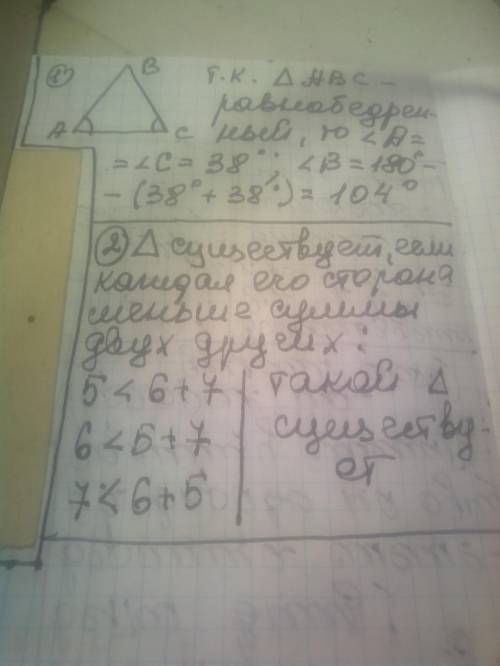 1) B
A C
т.к. △ ABC –
равнобедрен-
ный, то ∠A=
= ∠C = 38°; ∠B = 180° –
– (38° + 38°) = 104°
2) △ существует, если
каждая его сторона
меньше суммы
двух других:
5 < 6 + 7
6 < 5 + 7
7 < 6 + 5
такой △
существу-
ет